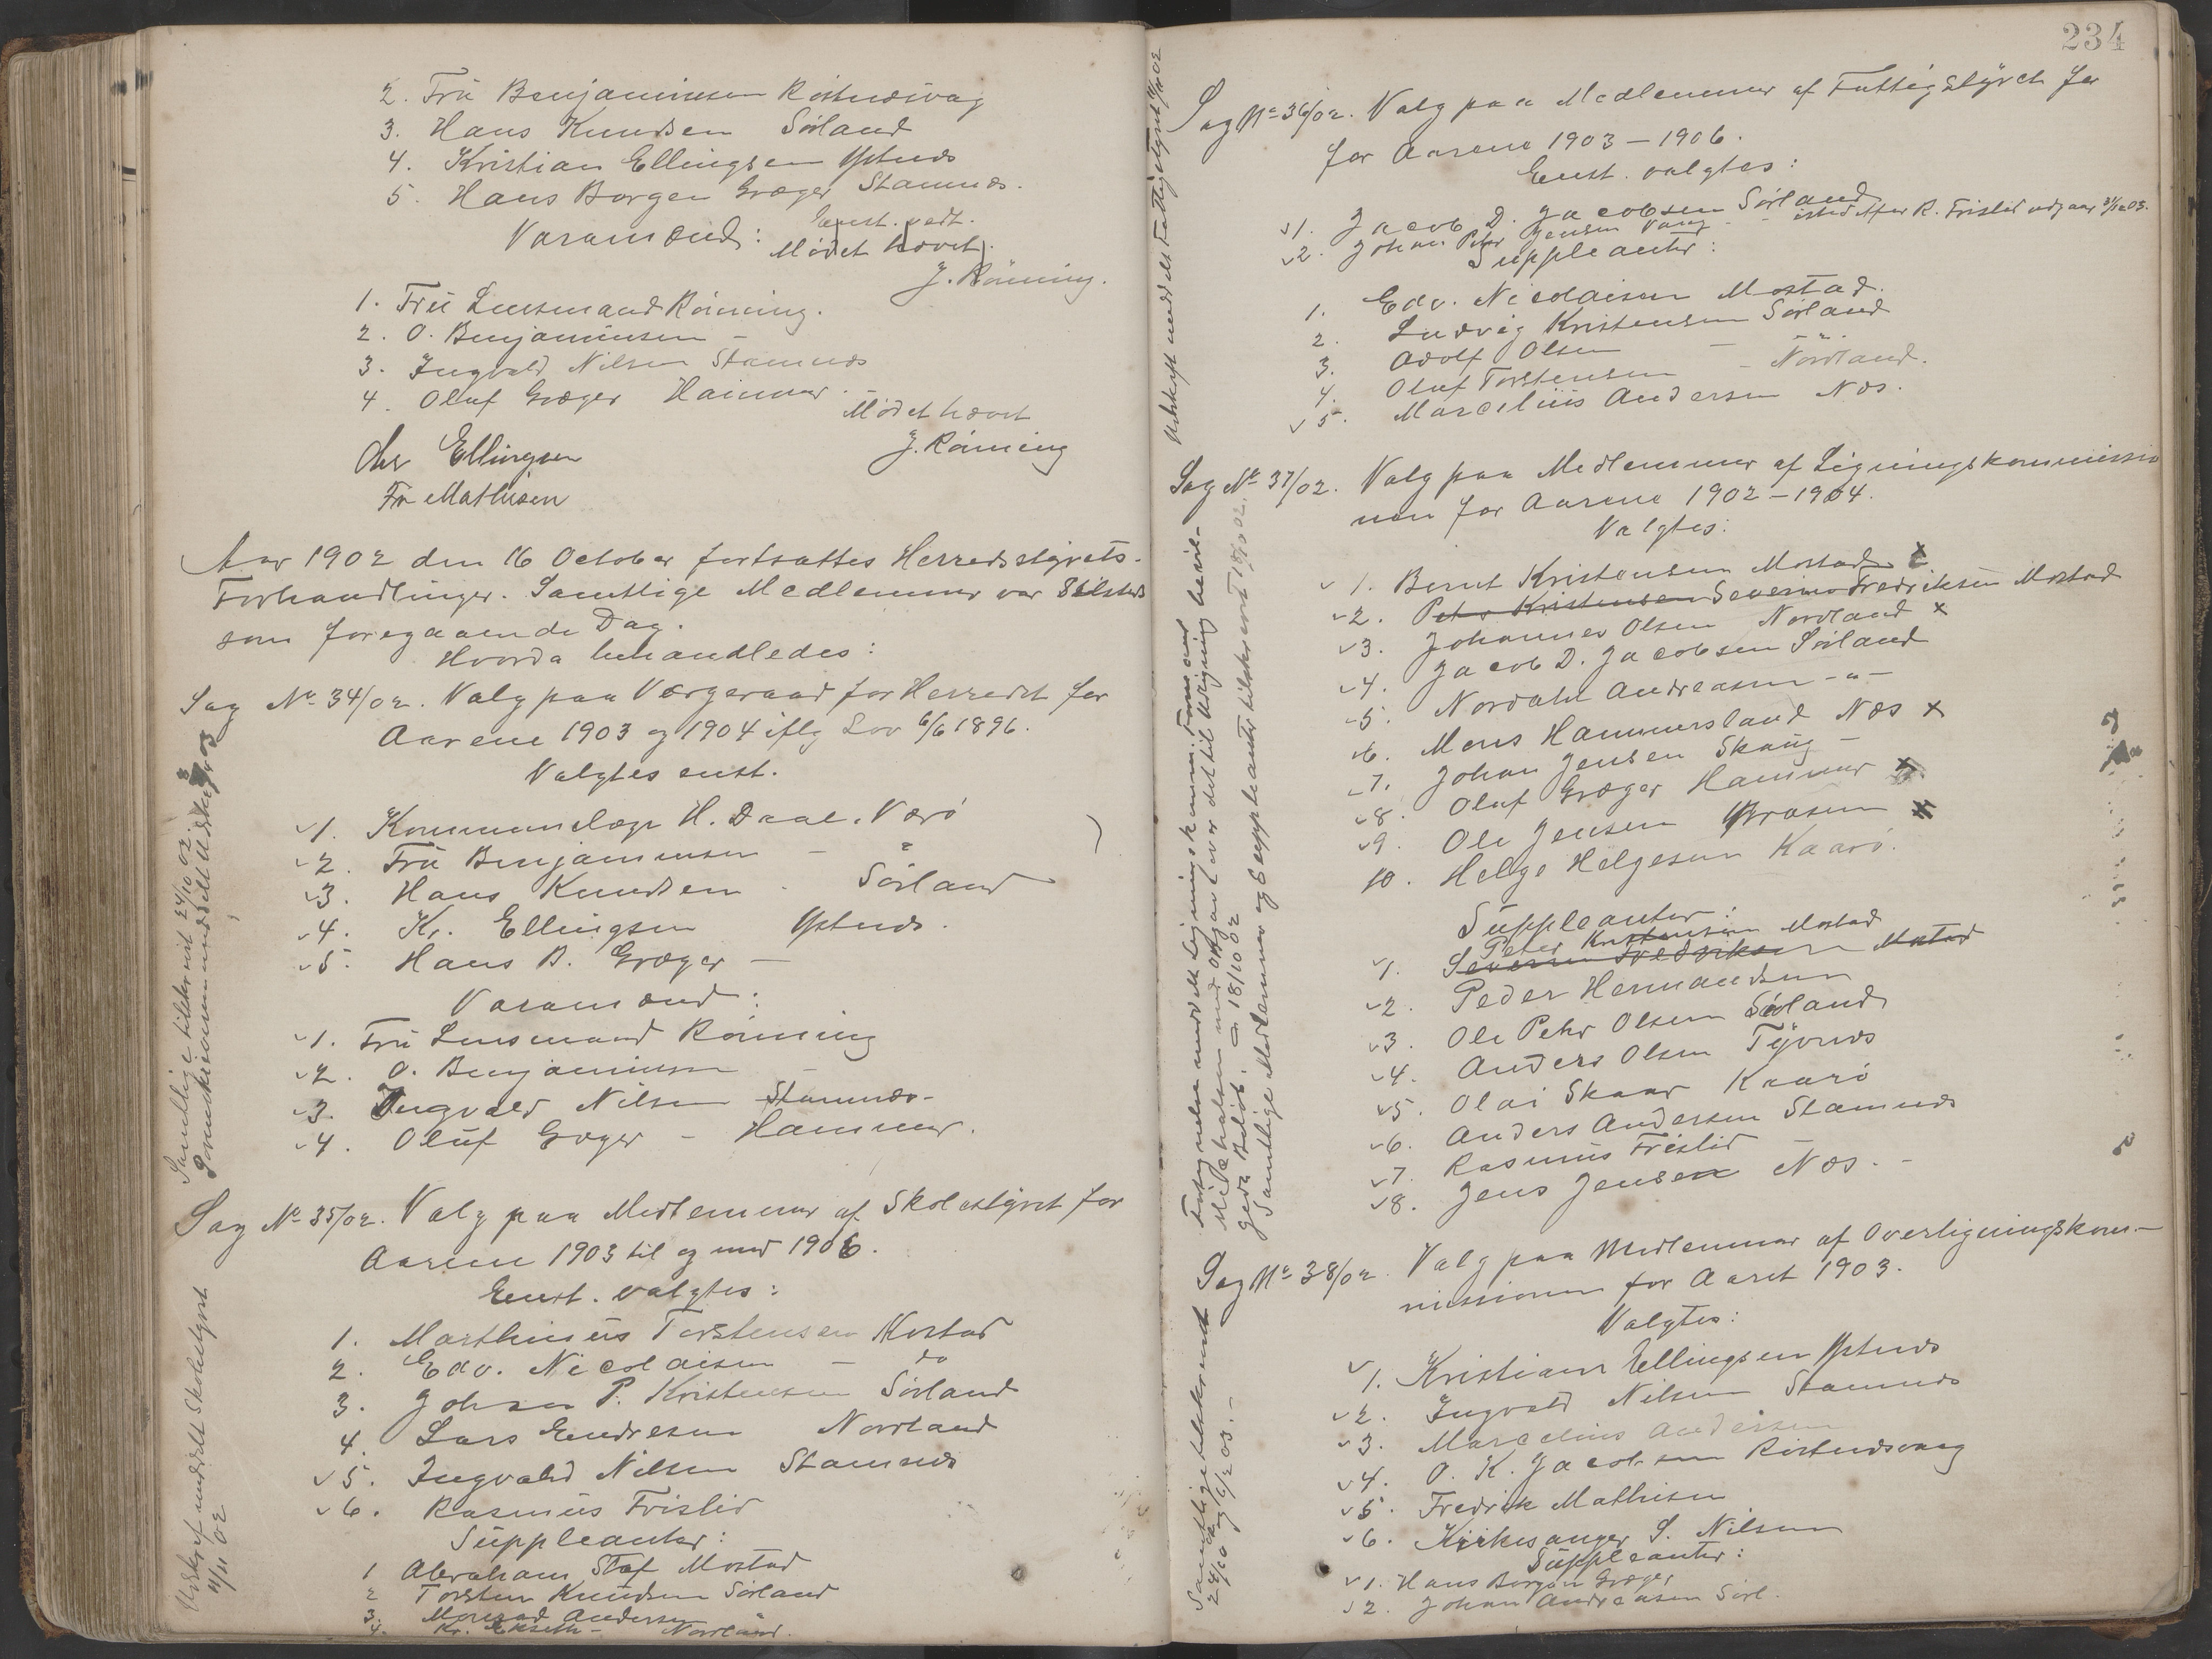 2. Frü Benjaminsen Röstnæsvag
3. Hans Knudsen Sörland
4. Kristian Ellingsen Ystnæs
5. Hans Borgen Græger Stamnæs.
Varamænd: Enst. vedt.
Mödet hævet.
J. Rönning.
1. Frü Lensmand Rönning.
2. O. Benjaminsen –
3. Ingvald Nilsen Stamnæs
4. Oluf Græger Hammer. –
Mödet hævet
J. Rönning
Chr Ellingsen
Fr Mathisen
Aar 1902 den 16 October fortsattes Herredsstyrets-
Forhandlinger. Samtlige Medlemmer var Tilstede
som foregaaende Dag.
Hvorda behandledes:
Sag No 34/02. Valg paa Værgeraad for Herredet for
Aarene 1903 og 1904 iflg Lov 6/6 1896.
Valgtes enst.
1. Kommunelæge H. Daae. Værö
2. Frü Benjaminsen – "
3. Hans Knudsen . Sörland
4. Kr. Ellingsen Ystnæs.
5. Hans B. Græger –
Varamænd:
1. Frü Lensmand Rönning
2. O. Benjaminsen –
3. Ingvald Nilsen Stamnæs-
4. Olüf Græger – Hammer.
Samtlige tilskrevet 24/10 02.
Sag No 35/02. Valg paa Medlemmer af Skolestyret for
Aarene 1903 til og med 1906.
Enst. valgtes:
1. Marthinüs Torstensen Mostad
2. Edv. Nicolaisen – do
3. Johan P. Kristensen Sörland
4. Lars Endresen Nordland
5. Ingvald Nilsen Stamnæs
6. Rasmüs Fristid
Süppleanter:
1 Abraham Staf Mostad
2 Torsten Knüdsen Sörland
3. Andersen
4. Kr. Ekseth – Nordland.
Udskrift meddelt Skolestyret
11/11 02
234
Sag No 36/02. Valg paa Medlemmer af Fattigstyret for
for Aarene 1903 – 1906.
Enst. valgtes:
1. Jacob D. Jacobsen Sörland
2. Johan Peter Jensen Vang – istedetfor R. Fristid udgaar 31/12 03.
Süppleanter:
1. Edv. Nicolaisen Mostad.
2. Ludvig Kristensen Sörland
3. Adolf Olsen – " –
4. Oluf Torstensen – Nordland.
5. Marceliüs Andersen Næs.
Udskrift meddelt Fattigstyret 11/11 02
Sag No 37/02. Valg paa Medlemmer af Ligningskommissio
nen for Aarene 1902 – 1904.
Valgtes:
1. Bernt Kristensen Mostad x
2. Peter Kristensen Severin Fredriksen Mostad
3. Johannes Olsen Nordland x
4. Jacob D. Jacobsen Sörland
5. Nordahl Andreasen – " –
6. Mons Hammersland Næs x
7. Johan Jensen Skaug –
8. Oluf Græger Hammer x
9. Ole Jensen x
10. Helge Helgesen Kaarö.
Süppleanter:
Peter Kristensen Mostad
1. Severin Fredriksen Mostad
2. Peder Hermandsen
3. Ole Peter Olsen Sörland
4. Anders Olsen Tyvnæs
5. Olai Skaar Kaarö
6. Anders Andersen Stamnæs
7. Rasmüs Fristid
8. Jens Jensen Næs. –
Samtlige Medlemmer og Suppleanter tilskrevet
Sag No 38/02. Valg paa Medlemmer af Overligningskom-
missionen for Aaret 1903.
Valgtes:
1. Kristian Ellingsen Ystnæs
2. Ingvald Nilsen Stamnæs
3. Marcelius Andersen
4. O. K. Jacobsen Röstnæsvaag
5. Fredrik Mathisen
6. Kirkesanger S. Nilsen
Süppleanter:
1. Hans Borgen Græger
2. Johan Andreasen Sörl.
Samtlige tilskrevet
24/10 02 og 6/2 03. –